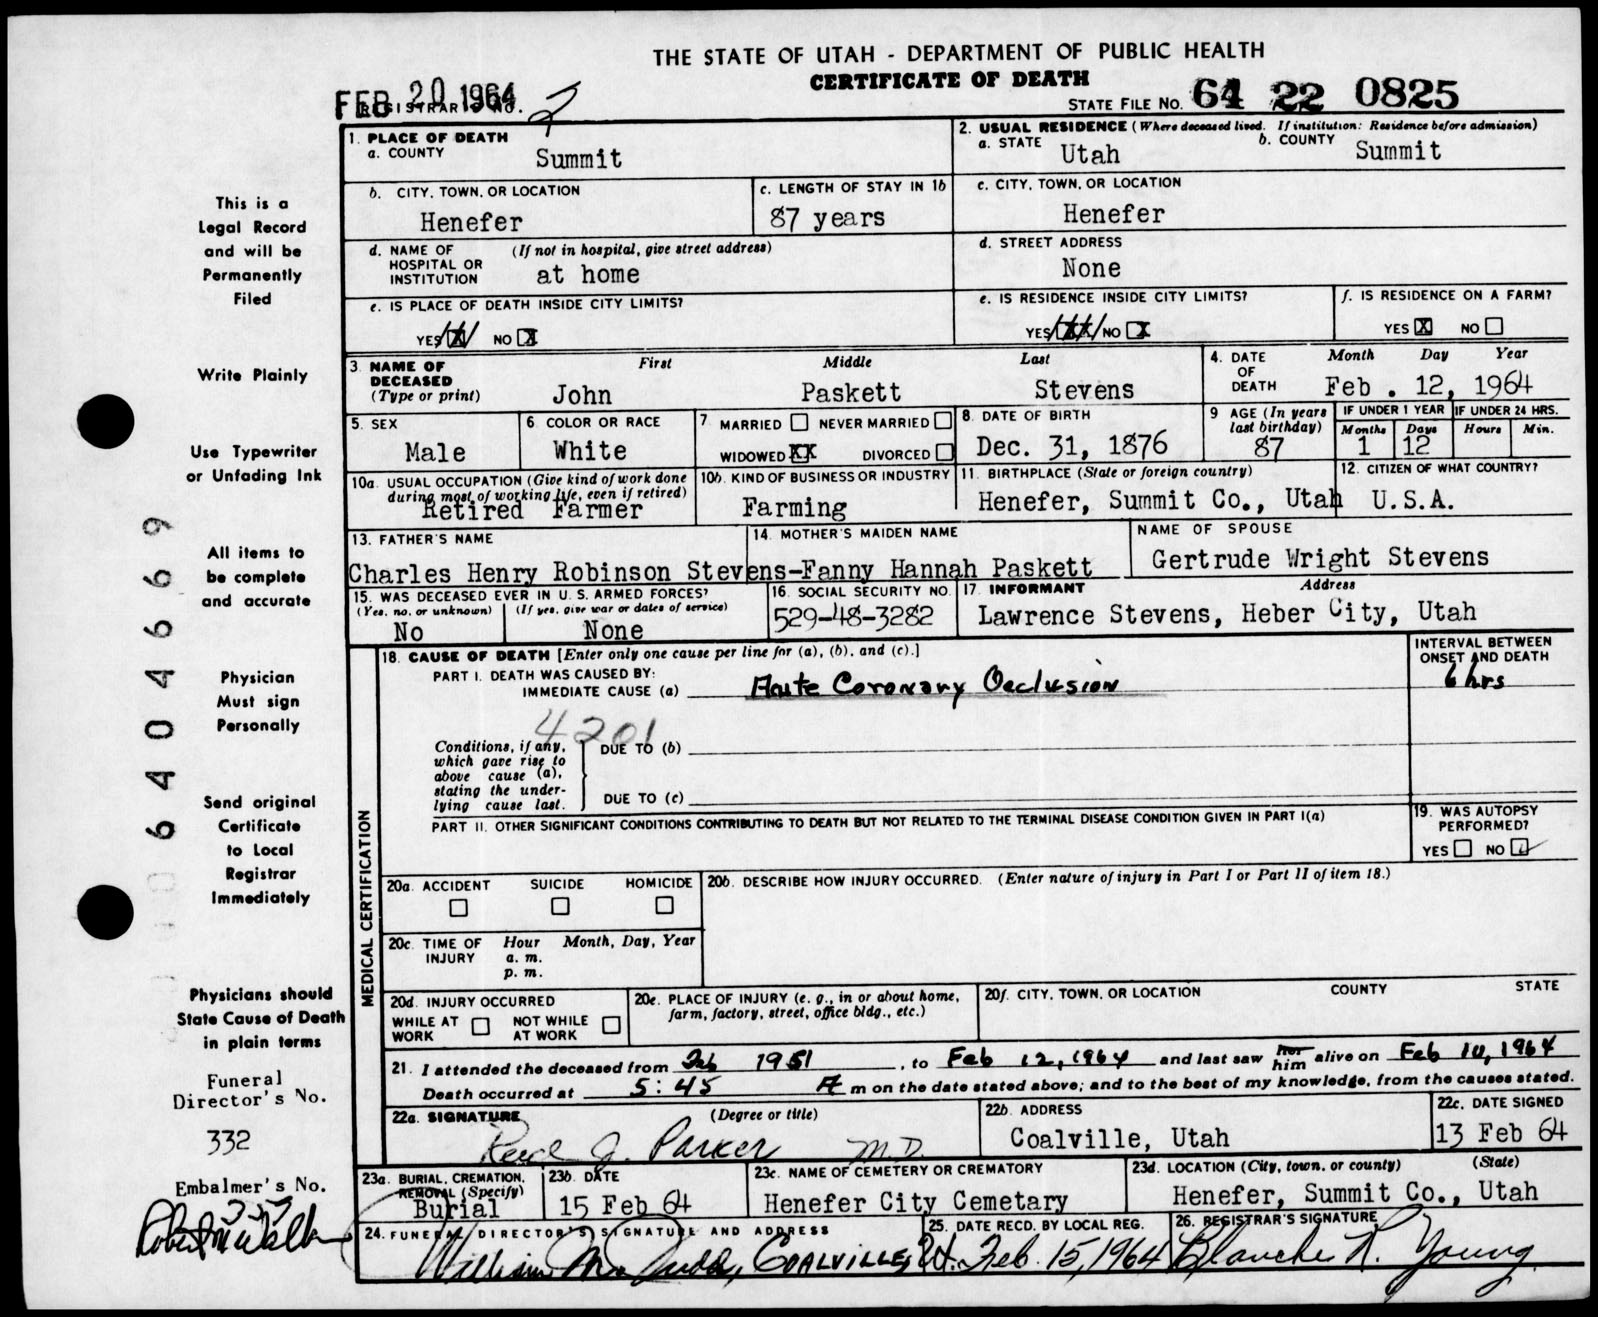 THE STATE OF UTAH - DEPARTMENT OF PUBLIC HEALTH
CERTIFICATE OF DEATH
FEB 20 1964
REGISTRAR'S NO. 2
STATE FILE NO. 64 22 0825
This is a
Legal Record
and will be
Permanently
Filed
Write Plainly
Use Typewriter
or Unfading Ink
All items to
be complete
and accurate
Physician
Must sign
Personally
Send original
Certificate
to Local
Registrar
Immediately
Physicians should
State Cause of Death
in plain terms
Funeral
Director's No.
332
Embalmer's No.
64046669
1. PLACE OF DEATH
a. COUNTY Summit
2. USUAL RESIDENCE (Where deceased lived. If institution: Residence before admission)
a. STATE Utah b. COUNTY Summit
b. CITY, TOWN, OR LOCATION
Henefer
c. LENGTH OF STAY IN 1b
87 years
c. CITY, TOWN, OR LOCATION
Henefer
d. NAME OF HOSPITAL OR INSTITUTION (If not in hospital, give street address)
at home
d. STREET ADDRESS
None
e. IS PLACE OF DEATH INSIDE CITY LIMITS?
YES NO X
e. IS RESIDENCE INSIDE CITY LIMITS?
YES NO X
f. IS RESIDENCE ON A FARM?
YES X NO
3. NAME OF DECEASED (Type or print) First Middle Last
John Paskett Stevens
4. DATE OF DEATH Month Day Year
Feb . 12, 1964
5. SEX
Male
6. COLOR OR RACE
White
7. MARRIED NEVER MARRIED
WIDOWED XX DIVORCED
8. DATE OF BIRTH
Dec. 31, 1876
9 AGE (In years last birthday)
87
IF UNDER 1 YEAR IF UNDER 24 HRS.
Months Days Hours Min.
1 12
10a. USUAL OCCUPATION (Give kind of work done during most of working life, even if retired)
Retired Farmer
10b. KIND OF BUSINESS OR INDUSTRY
Farming
11. BIRTHPLACE (State or foreign country)
Henefer, Summit Co., Utah
12. CITIZEN OF WHAT COUNTRY?
U.S.A.
13. FATHER'S NAME
14. MOTHER'S MAIDEN NAME
Charles Henry Robinson Stevens-Fanny Hannah Paskett
NAME OF SPOUSE
Gertrude Wright Stevens
15. WAS DECEASED EVER IN U. S. ARMED FORCES?
(Yes, no, or unknown) (If yes, give war or dates of service)
No None
16. SOCIAL SECURITY NO.
529-48-3282
17. INFORMANT Address
Lawrence Stevens, Heber City, Utah
MEDICAL CERTIFICATION
18. CAUSE OF DEATH [Enter only one cause per line for (a), (b), and (c).]
INTERVAL BETWEEN ONSET AND DEATH
PART I. DEATH WAS CAUSED BY:
IMMEDIATE CAUSE (a) Acute Coronary Occlusion 6 hrs
4201
Conditions, if any, which gave rise to above cause (a), stating the underlying cause last.
DUE TO (b)
DUE TO (c)
PART II. OTHER SIGNIFICANT CONDITIONS CONTRIBUTING TO DEATH BUT NOT RELATED TO THE TERMINAL DISEASE CONDITION GIVEN IN PART I(a)
19. WAS AUTOPSY PERFORMED?
YES NO ✓
20a. ACCIDENT SUICIDE HOMICIDE
20b. DESCRIBE HOW INJURY OCCURRED. (Enter nature of injury in Part I or Part II of item 18.)
20c. TIME OF INJURY Hour Month, Day, Year
a. m.
p. m.
20d. INJURY OCCURRED
WHILE AT WORK NOT WHILE AT WORK
20e. PLACE OF INJURY (e. g., in or about home, farm, factory, street, office bldg., etc.)
20f. CITY, TOWN, OR LOCATION COUNTY STATE
21. I attended the deceased from Feb 1951, to Feb 12, 1964 and last saw her him alive on Feb 10, 1964
Death occurred at 5:45 A m on the date stated above; and to the best of my knowledge, from the causes stated.
22a. SIGNATURE (Degree or title)
J. Parker M.D.
22b. ADDRESS
Coalville, Utah
22c. DATE SIGNED
13 Feb 64
23a. BURIAL, CREMATION, REMOVAL (Specify)
Burial
23b. DATE
15 Feb 64
23c. NAME OF CEMETERY OR CREMATORY
Henefer City Cemetary
23d. LOCATION (City, town, or county) (State)
Henefer, Summit Co., Utah
24. FUNERAL DIRECTOR'S SIGNATURE AND ADDRESS
William M. Judd, COALVILLE, Ut.
25. DATE RECD. BY LOCAL REG.
Feb. 15, 1964
26. REGISTRAR'S SIGNATURE
Blanche R. Young